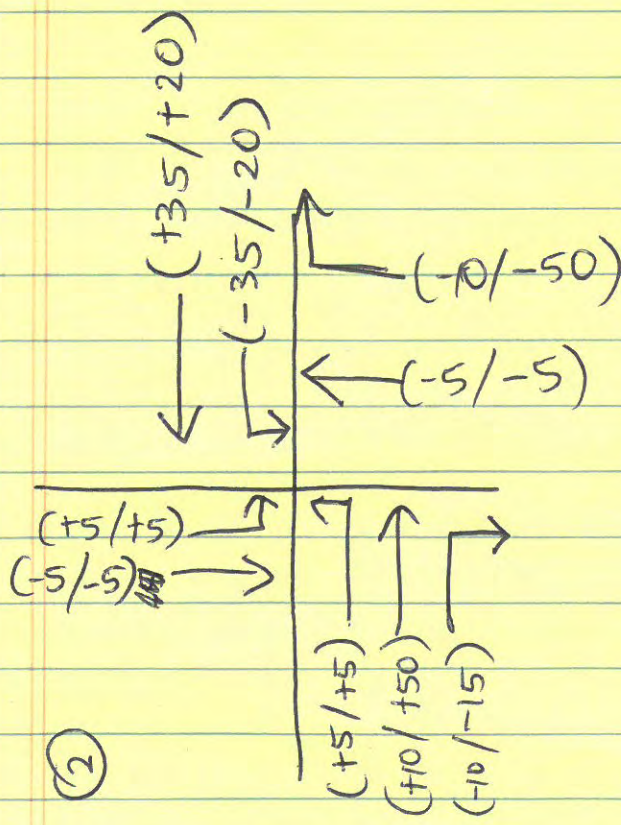 (+35/+20)
(-35/-20)
(-10/-50)
(-5/-5)
(+5/+5)
(-5/-5)
(+5/+5)
(+10/+50)
(-10/-15)
2